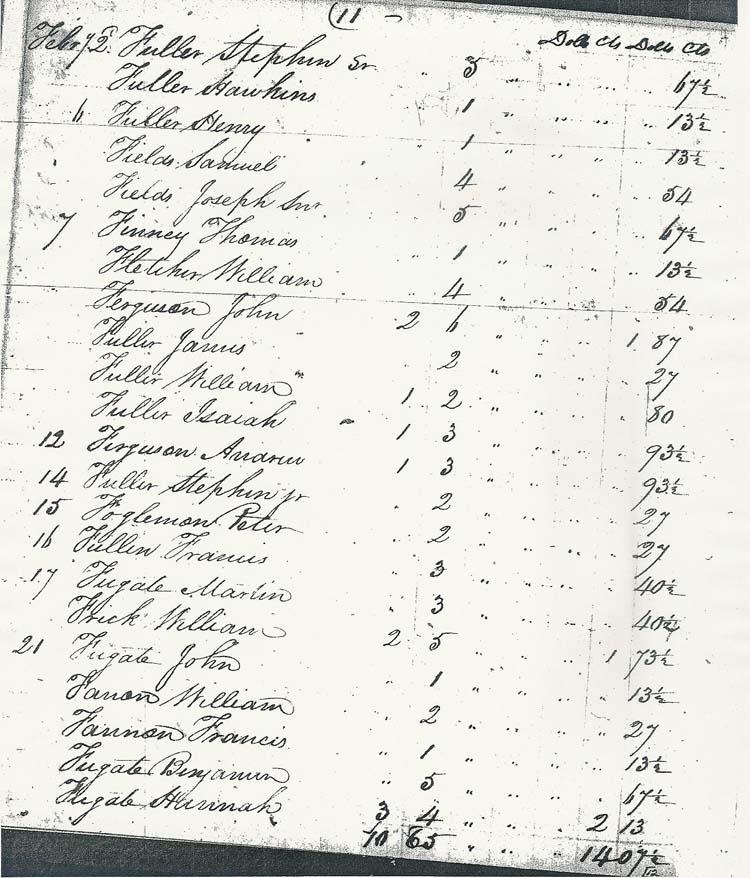 (11 -
Dolls Cts Dolls Cts
Febry 2d. Fuller Stephen Sr " 5 " " " " 67½
Fuller Hawkins " 1 " " " " 13½
6 Fuller Henry " 1 " " " " 13½
Fields Samuel " 4 " " " " 54
Fields Joseph Snr " 5 " " " " 67½
7 Finney Thomas " 1 " " " " 13½
Fletcher William " 4 " " " " 54
Ferguson John 2 6 " " " 1 87
Fuller James 2 " " " " 27
Fuller William 1 2 " " " " 80
Fuller Isaiah 1 3 " " " " 93½
12 Ferguson Andrew 1 3 " " " " 93½
14 Fuller Stephen jr " 2 " " " " 27
15 Foglemon Peter " 2 " " " " 27
16 Fullen Francis " 3 " " " " 40½
17 Fugate Martin " 3 " " " " 40½
Frick William 2 5 " " " 1 73½
21 Fugate John " 1 " " " " 13½
Fanon William " 2 " " " " 27
Fannon Francis " 1 " " " " 13½
Fugate Benjamin " 5 " " " " 67½
Fugate Hannah 3 4 " " " 2 13
10 65 " " " 14 07½